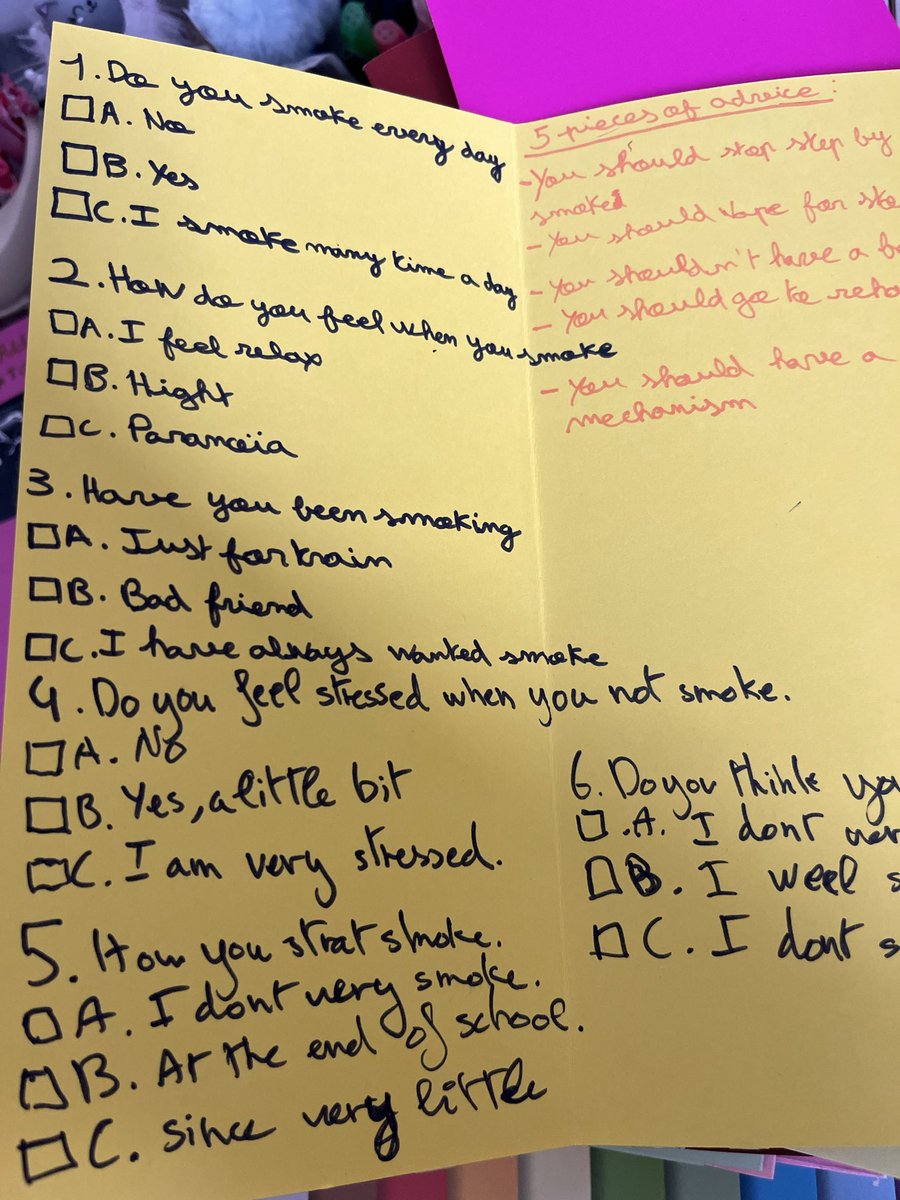 1. Do you smoke every day
A. No
B. Yes
C. I smoke many time a day
2. How do you feel when you smoke
A. I feel relax
B. Hight
C. Paranoïa
3. Have you been smoking
A. Just for train
B. Bad friend
C. I have always wanted smoke
4. Do you feel stressed when you not smoke.
A. No
B. Yes, a little bit
C. I am very stressed.
5. How you strat smoke.
A. I dont very smoke.
B. At the end of school.
C. since very little
5 pieces of advice :
- You should stop step by
smoke
- You should vape for
- You shouldn't have a
- You should go to
- You should have a
mechanism
6. Do you think
A. I dont
B. I weel
C. I dont